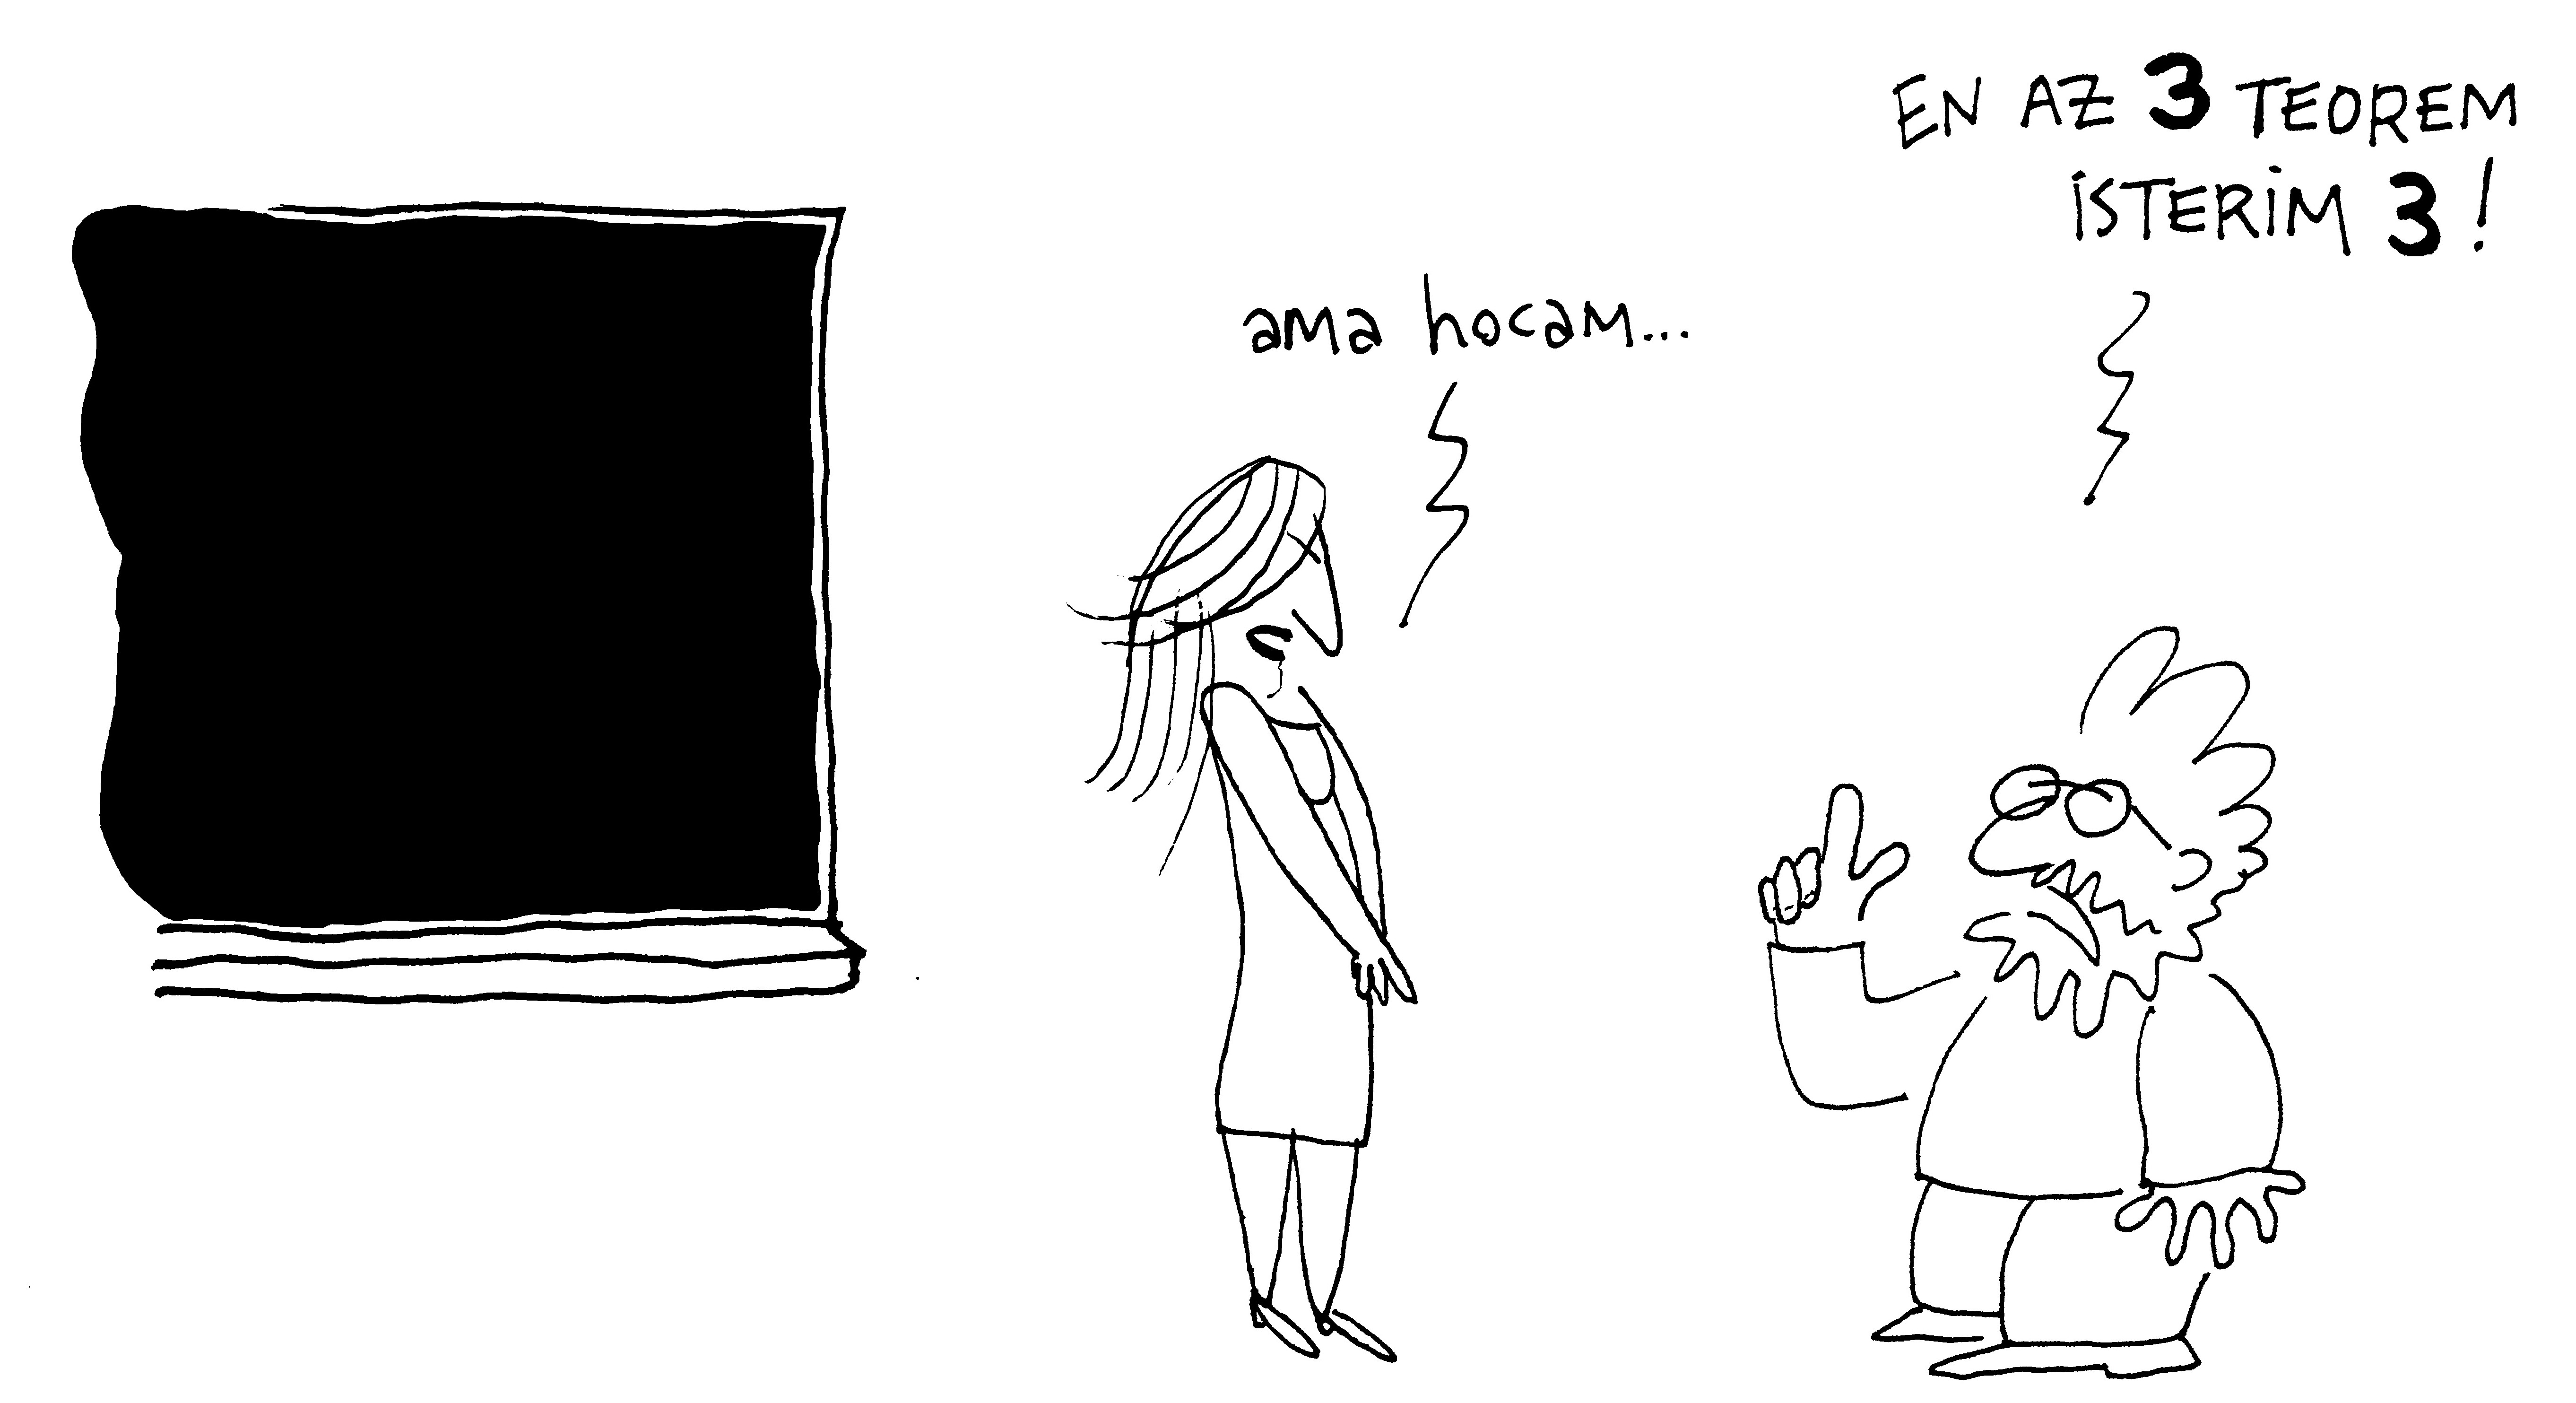 EN AZ 3 TEOREM
İSTERİM 3!
ama hocam...